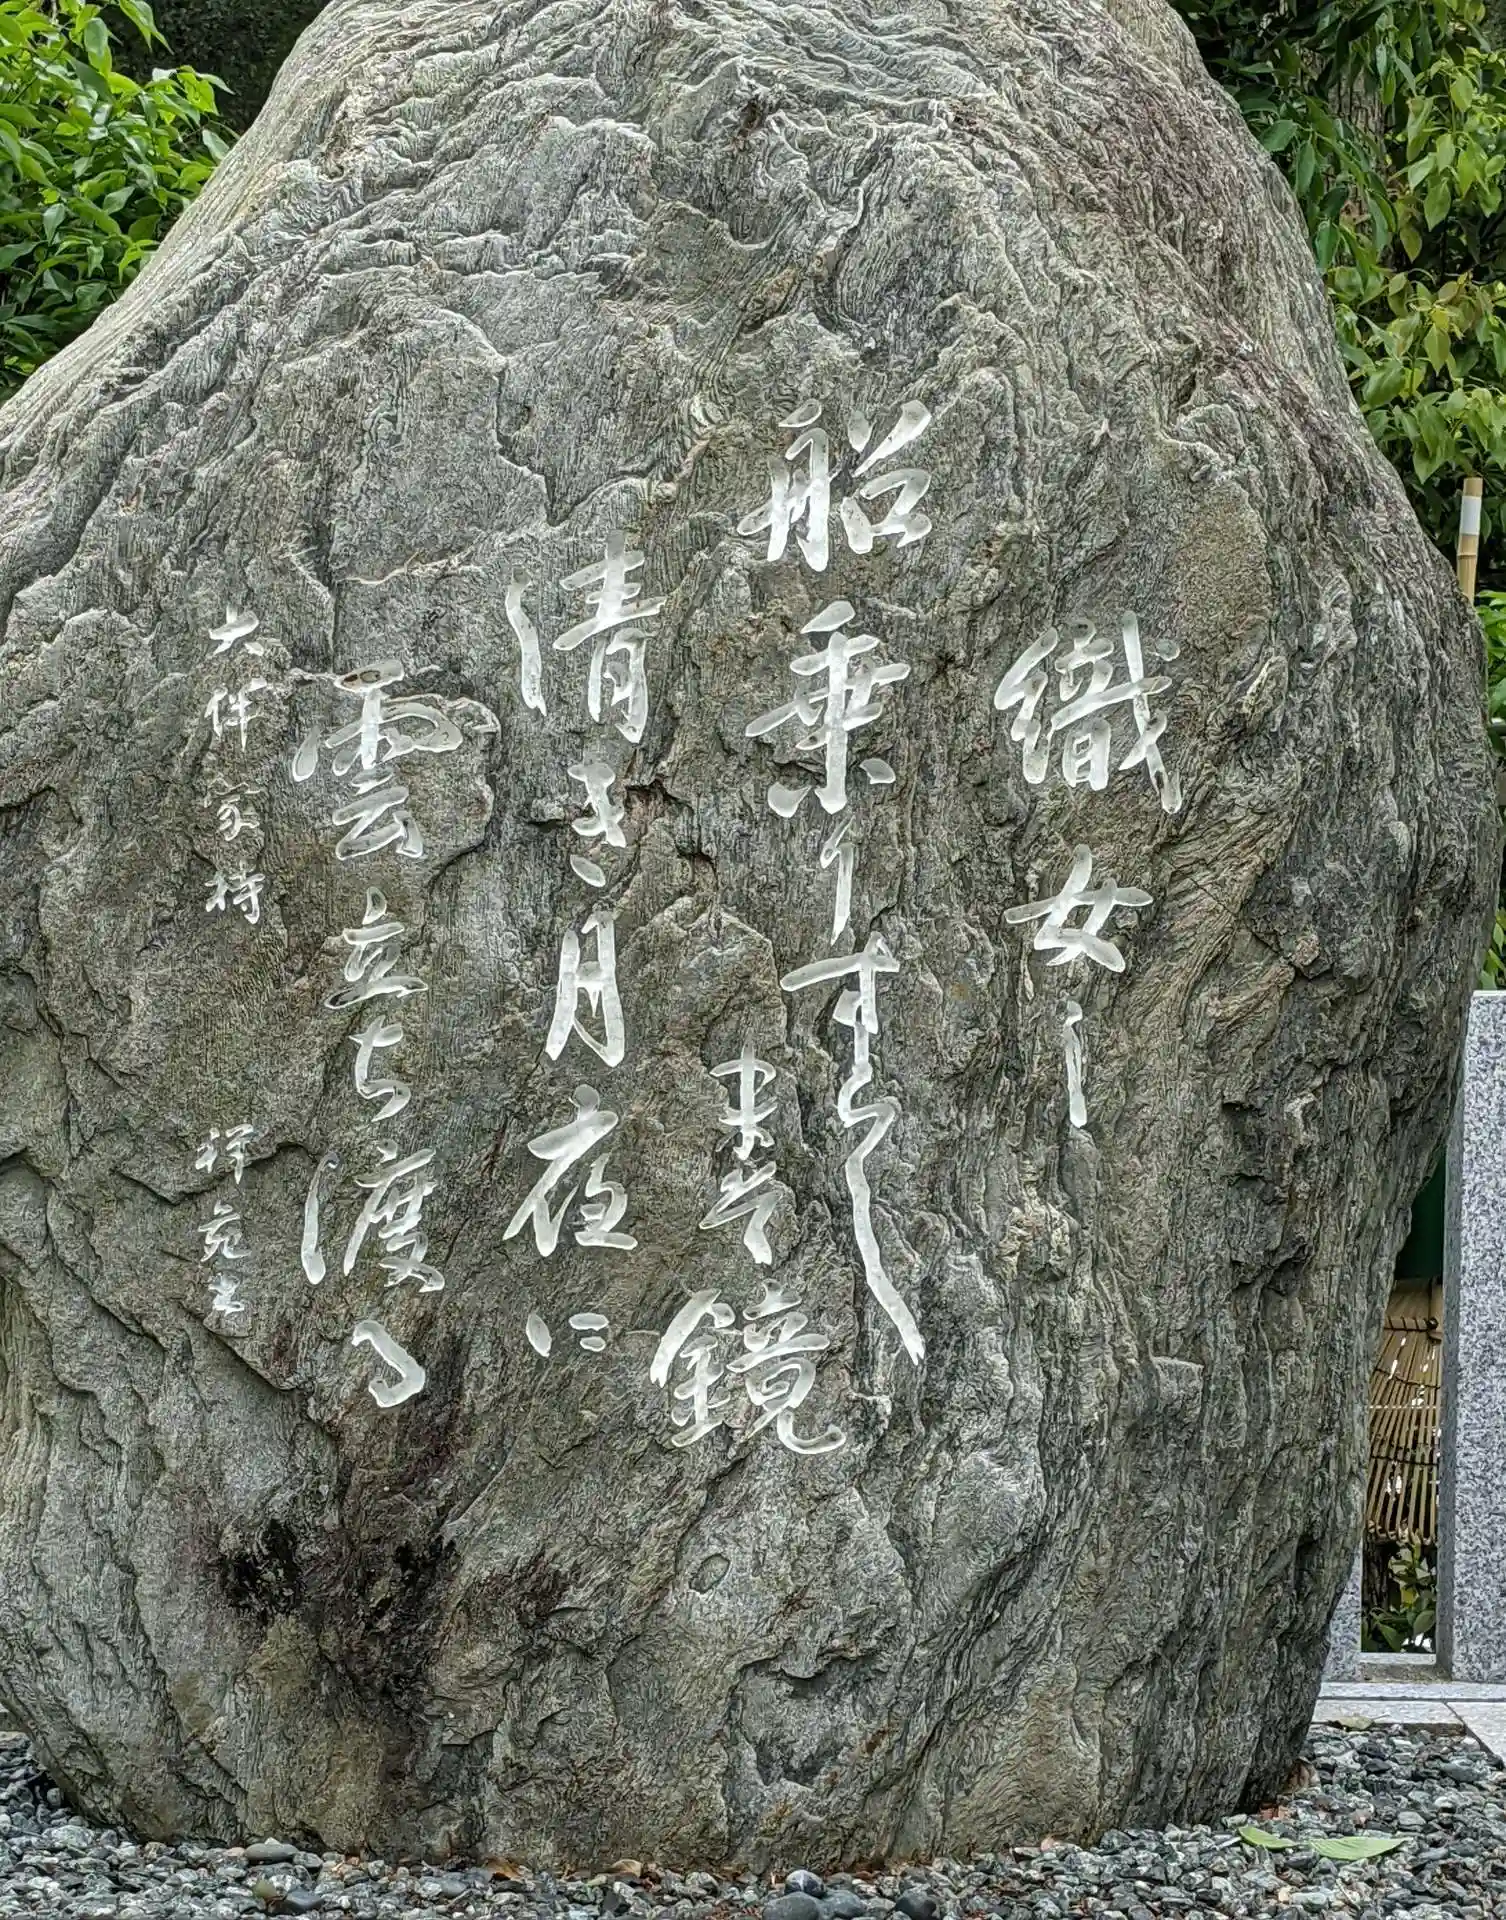 織女し
船乗りすらし
まそ鏡
清き月夜に
雲立ち渡る
大伴家持 祥苑書